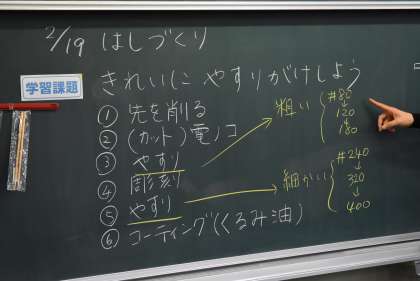 2/19 はしづくり
学習課題
きれいに やすりがけしよう
① 先を削る
② (カット)電ノコ
③ やすり
④ 彫刻
⑤ やすり
⑥ コーティング(くるみ油)
粗い
#80
↓
120
↓
180
細かい
#240
↓
320
↓
400